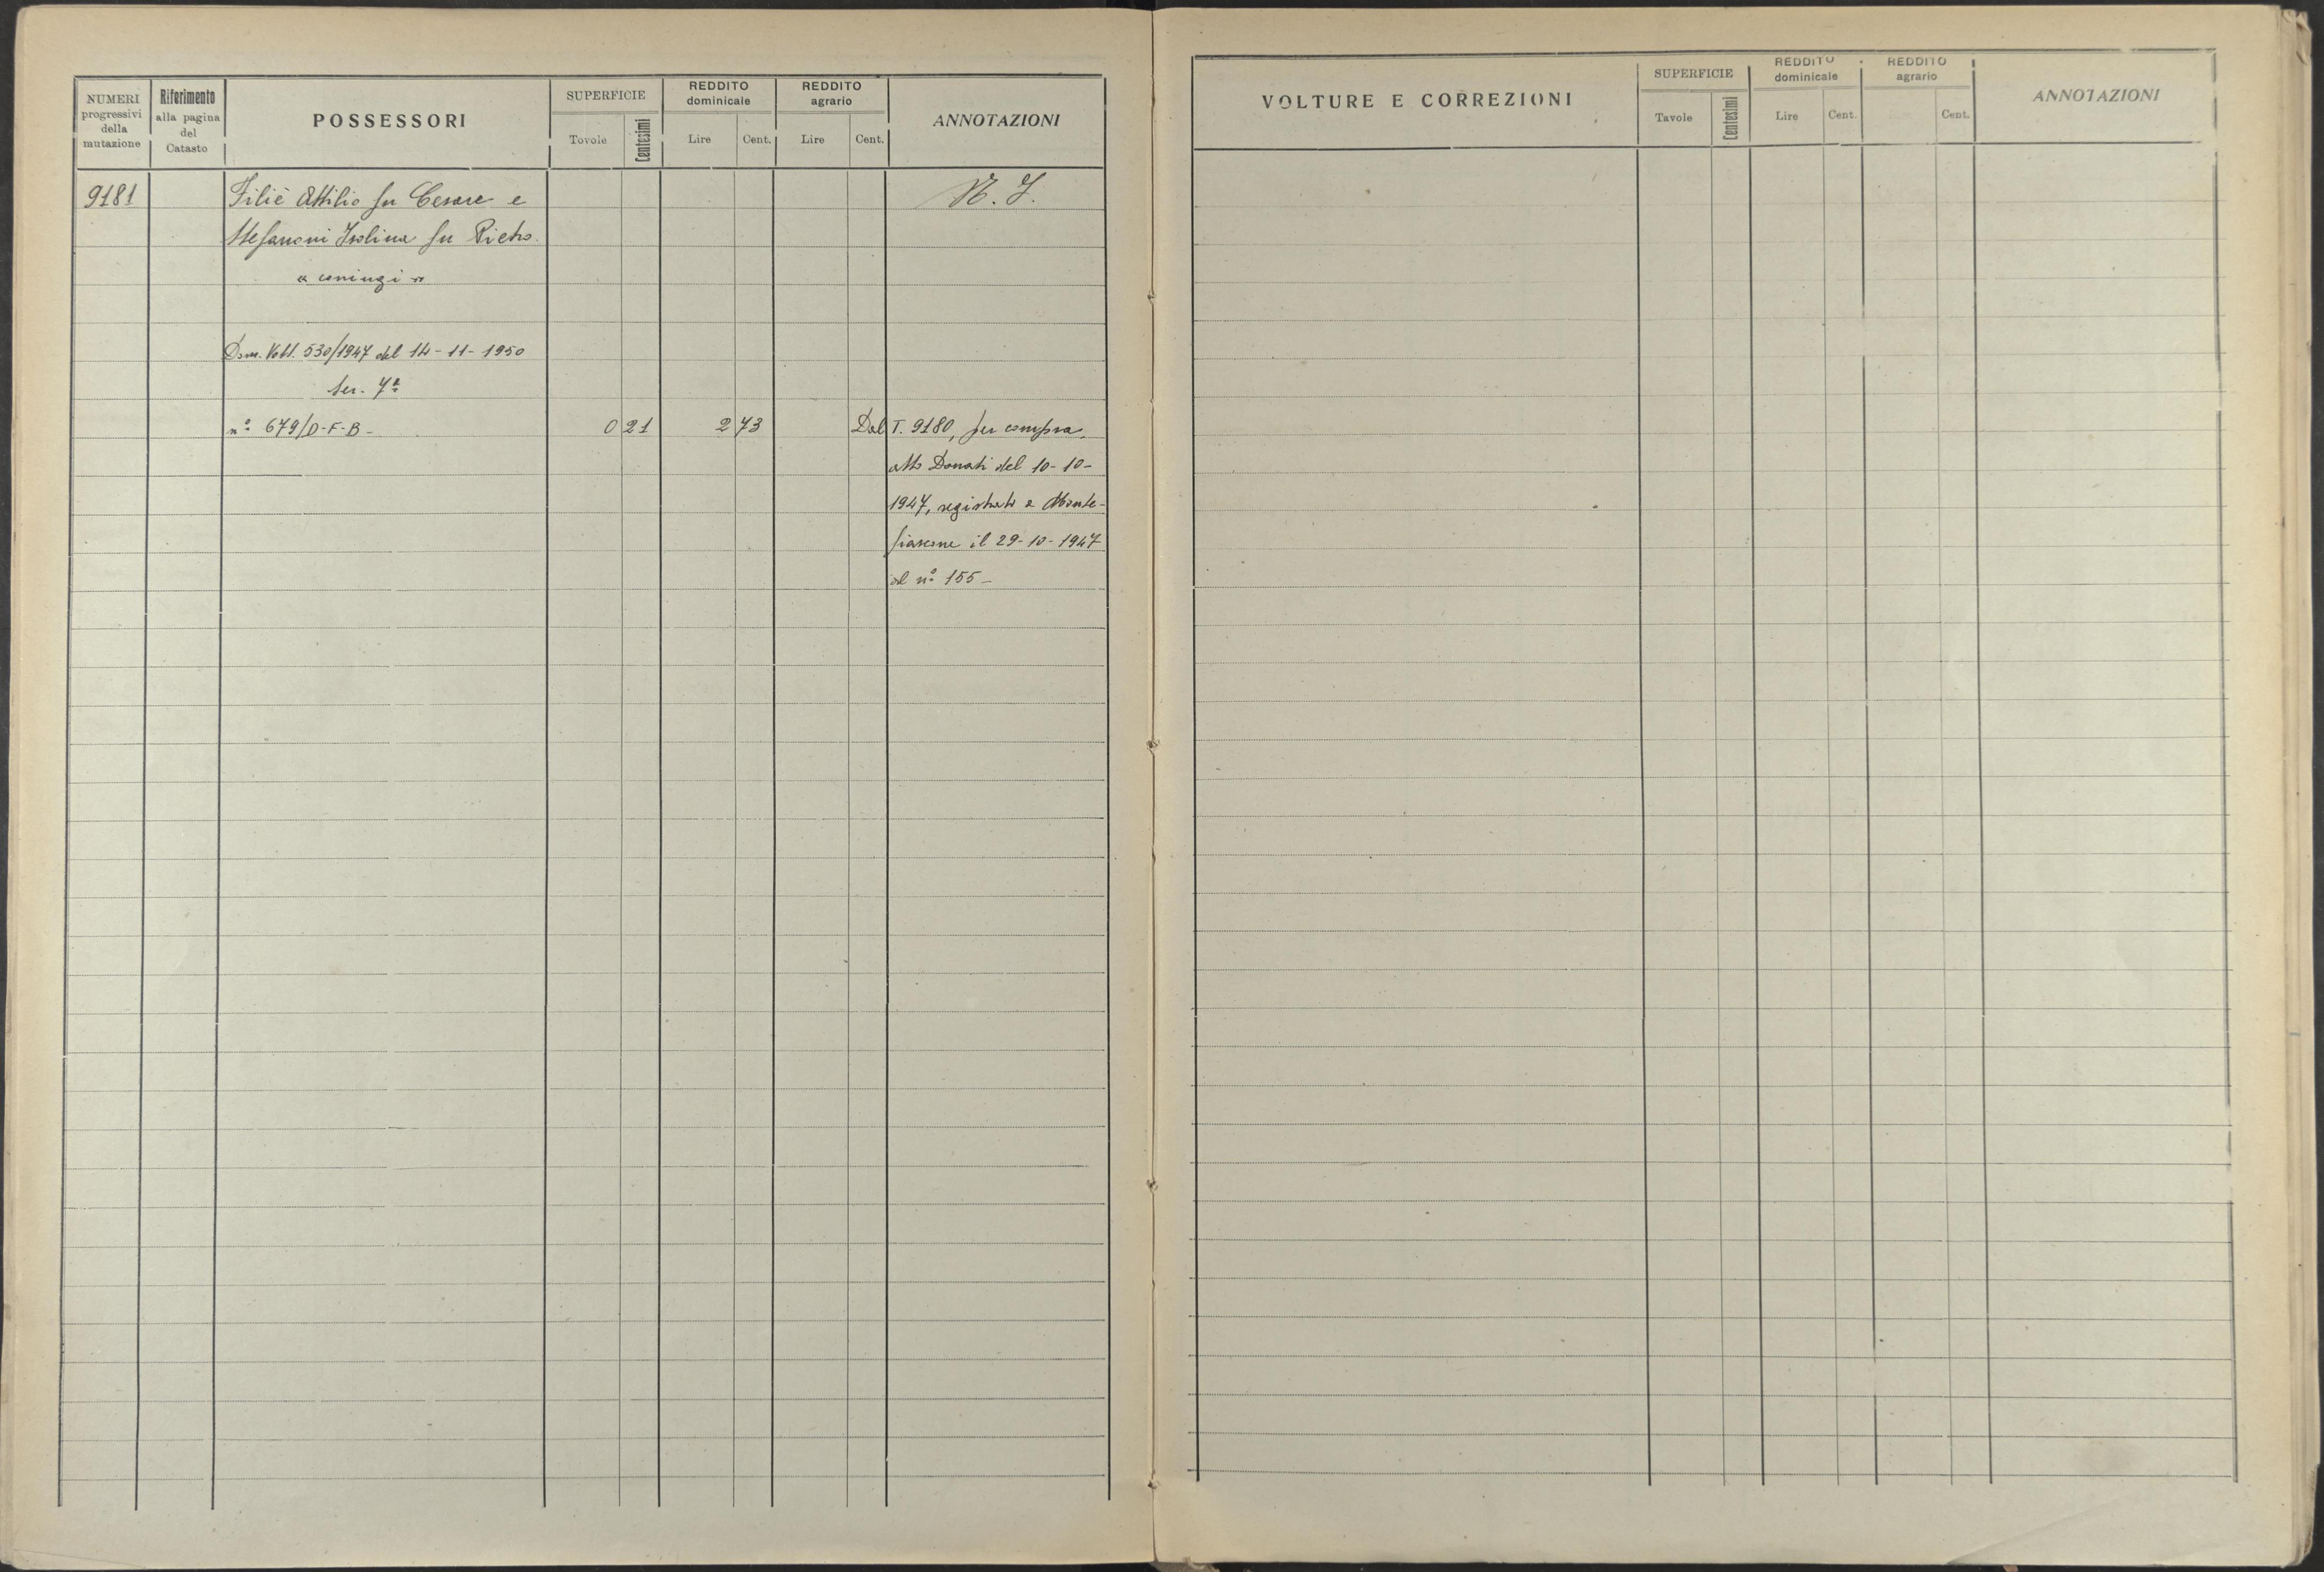 NUMERI progressivi della mutazione
Riferimento alla pagina del Catasto
POSSESSORI
SUPERFICIE
Tovole
Centesimi
REDDITO dominicale
Lire
Cent.
REDDITO agrario
Lire
Cent.
ANNOTAZIONI
9181
Filiè Attilio fu Cesare e
N. I.
Stefanoni Isolina fu Pietro
" coniugi "
Dom. Volt. 530/1947 del 14-11-1950
Ser. 7ª
n° 679/D-F-B-
0 21
2 73
Dal T. 9180, per compra,
atto Donati del 10-10-
1947, registrato a Monte-
fiascone il 29-10-1947
al n° 155-
VOLTURE E CORREZIONI
SUPERFICIE
Tavole
Centesimi
REDDITO dominicale
Lire
Cent.
REDDITO agrario
Cent.
ANNOTAZIONI